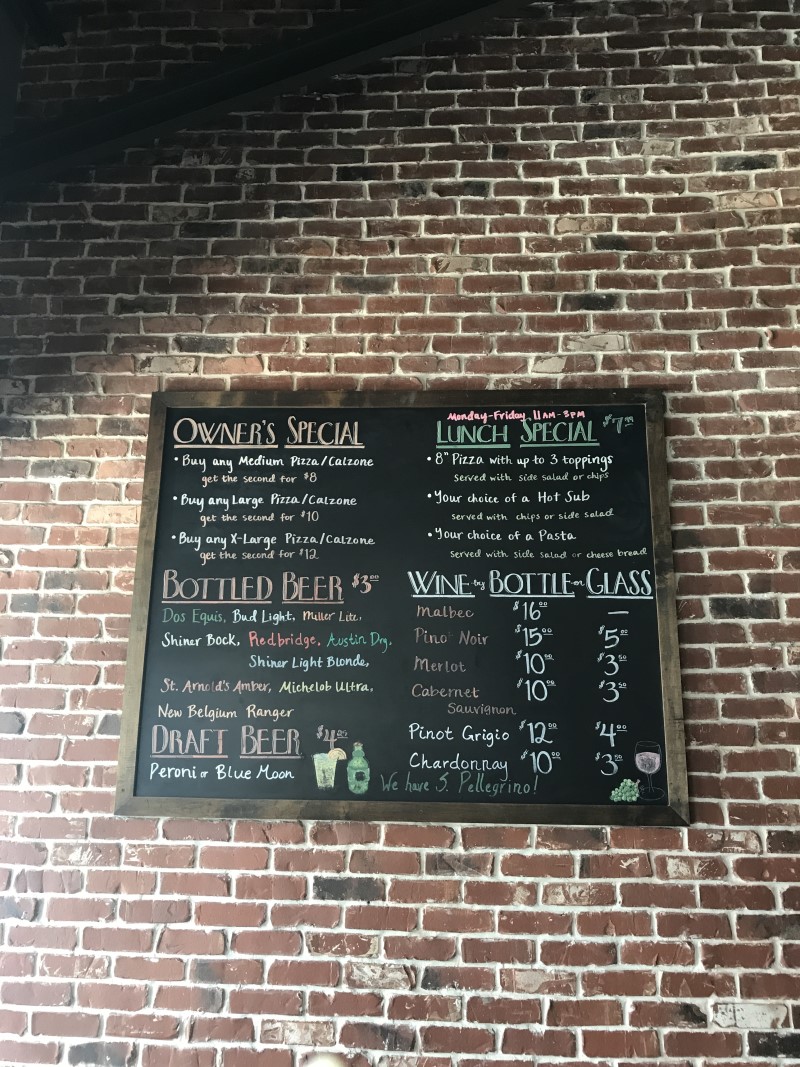 OWNER'S SPECIAL
• Buy any Medium Pizza/Calzone
get the second for $8
• Buy any Large Pizza/Calzone
get the second for $10
• Buy any X-Large Pizza/Calzone
get the second for $12
Monday-Friday 11AM-3PM
LUNCH SPECIAL $7.99
• 8" Pizza with up to 3 toppings
served with side salad or chips
• Your choice of a Hot Sub
served with chips or side salad
• Your choice of a Pasta
served with side salad or cheese bread
BOTTLED BEER $3.00
Dos Equis, Bud Light, Miller Lite,
Shiner Bock, Redbridge, Austin Dry,
Shiner Light Blonde,
St. Arnold's Amber, Michelob Ultra,
New Belgium Ranger
DRAFT BEER
Peroni or Blue Moon
WINE by BOTTLE or GLASS
Malbec $16.00 —
Pinot Noir $15.00 $5.00
Merlot $10.00 $3.50
Cabernet $10.00 $3.50
Sauvignon
Pinot Grigio $12.00 $4.00
Chardonnay $10.00 $3.50
We have S. Pellegrino!